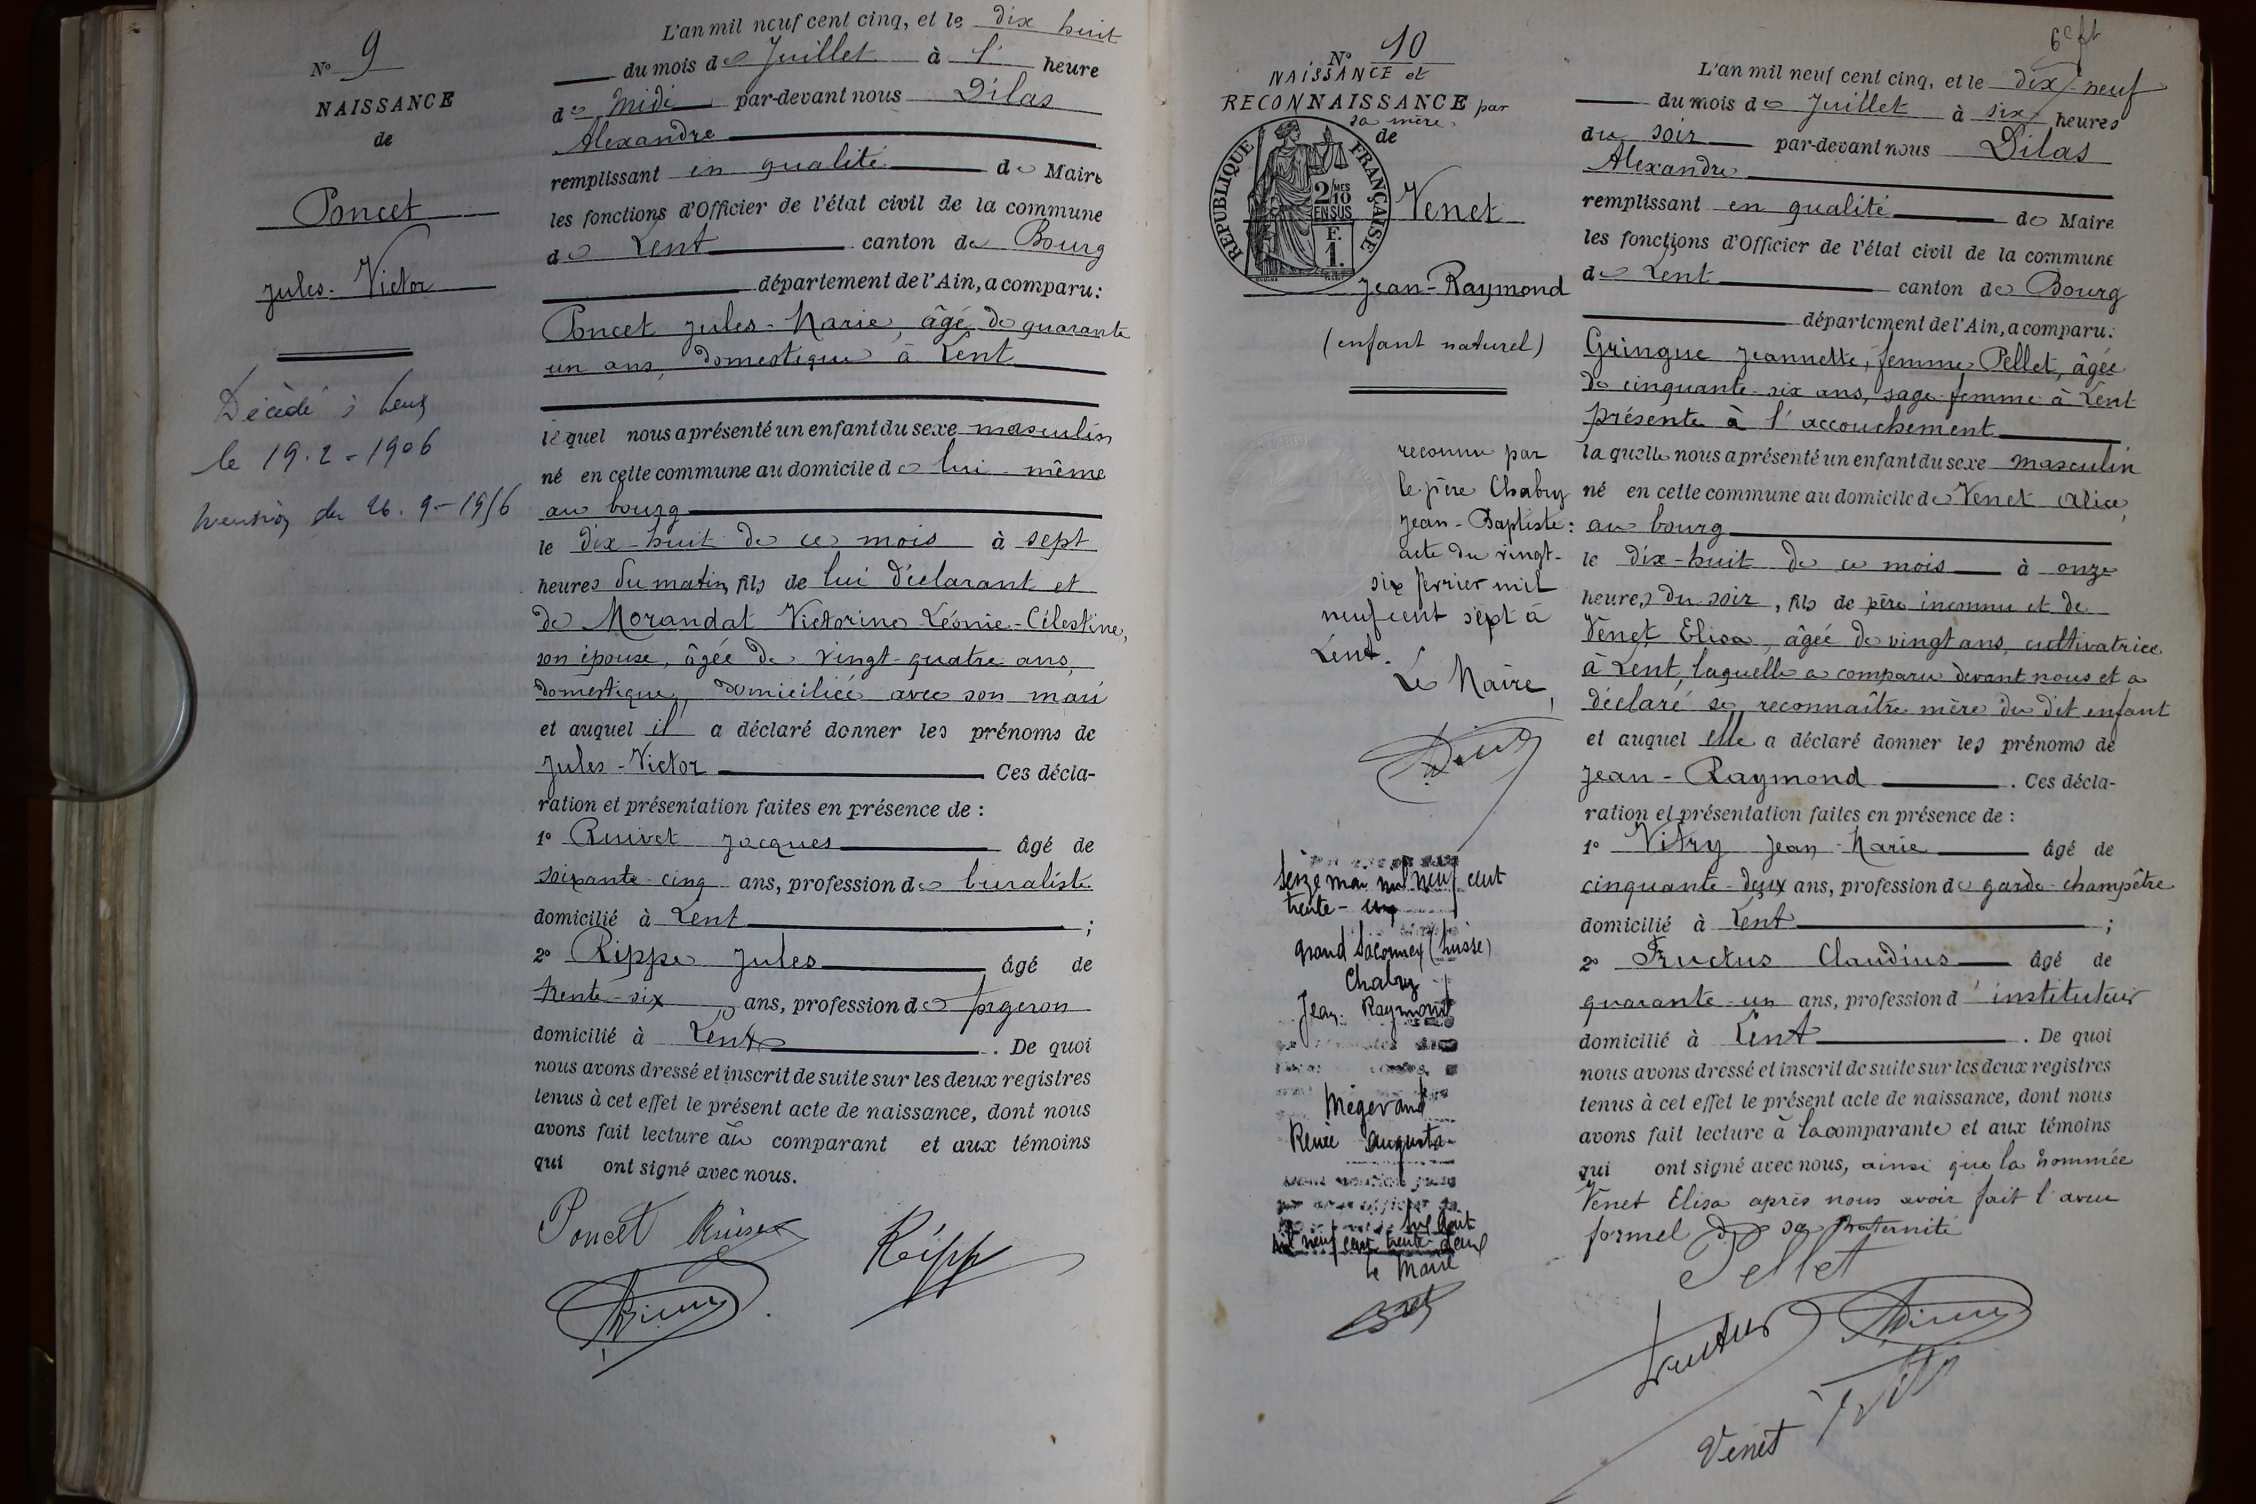 N° 9
NAISSANCE
de
Poncet
Jules-Victor
Décédé à
le 19.2-1906
du 26.9-1956
L'an mil neuf cent cinq, et le dix huit
du mois de Juillet à 1' heure
de midi par-devant nous Dilas
Alexandre
remplissant en qualité de Maire
les fonctions d'Officier de l'état civil de la commune
de Lent canton de Bourg
département de l'Ain, a comparu:
Poncet Jules-Marie, âgé de quarante
un ans, domestique à Lent
lequel nous a présenté un enfant du sexe masculin
né en cette commune au domicile de lui-même
au bourg
le dix-huit de ce mois à sept
heures du matin, fils de lui déclarant et
de Morandat Victorine-Léonie-Célestine,
son épouse, âgée de vingt-quatre ans,
domestique, domiciliée avec son mari
et auquel il a déclaré donner les prénoms de
Jules-Victor Ces décla-
ration et présentation faites en présence de :
1° Ruivet Jacques âgé de
soixante-cinq ans, profession de buraliste
domicilié à Lent ;
2° Rippe Jules âgé de
trente-six ans, profession de forgeron
domicilié à Lent . De quoi
nous avons dressé et inscrit de suite sur les deux registres
tenus à cet effet le présent acte de naissance, dont nous
avons fait lecture au comparant et aux témoins
qui ont signé avec nous.
Poncet Ruivet Ripp
N° 10
NAISSANCE et
RECONNAISSANCE par
sa mère
de
RÉPUBLIQUE FRANÇAISE
2/10 MES
EN SUS
F.
1.
Venet
Jean-Raymond
(enfant naturel)
reconnu par
le père Chabry
Jean-Baptiste:
acte du vingt-
six février mil
neuf cent sept à
Lent.
Le Maire,
seize mai mil neuf cent
trente-un
Grand Saconnex (Suisse)
Chabry
Jean-Raymond
Mégevand
Renée Augusta
août
mil neuf cent trente-deux
le Maire
6e ft
L'an mil neuf cent cinq, et le dix-neuf
du mois de Juillet à six heures
du soir par-devant nous Dilas
Alexandre
remplissant en qualité de Maire
les fonctions d'Officier de l'état civil de la commune
de Lent canton de Bourg
département de l'Ain, a comparu:
Gringue Jeannette, femme Pellet, âgée
de cinquante-six ans, sage-femme à Lent
présente à l'accouchement
laquelle nous a présenté un enfant du sexe masculin
né en cette commune au domicile de Venet Alice,
au bourg
le dix-huit de ce mois à onze
heures du soir, fils de père inconnu et de
Venet Elisa, âgée de vingt ans, cultivatrice
à Lent, laquelle a comparu devant nous et a
déclaré se reconnaître mère du dit enfant
et auquel elle a déclaré donner les prénoms de
Jean-Raymond . Ces décla-
ration et présentation faites en présence de :
1° Vitry Jean-Marie âgé de
cinquante-deux ans, profession de garde-champêtre
domicilié à Lent ;
2° Fructus Claudius âgé de
quarante-un ans, profession d'instituteur
domicilié à Lent . De quoi
nous avons dressé et inscrit de suite sur les deux registres
tenus à cet effet le présent acte de naissance, dont nous
avons fait lecture à la comparante et aux témoins
qui ont signé avec nous, ainsi que la nommée
Venet Elisa après nous avoir fait l'aveu
formel de sa maternité
Pellet
Fructus
Venet